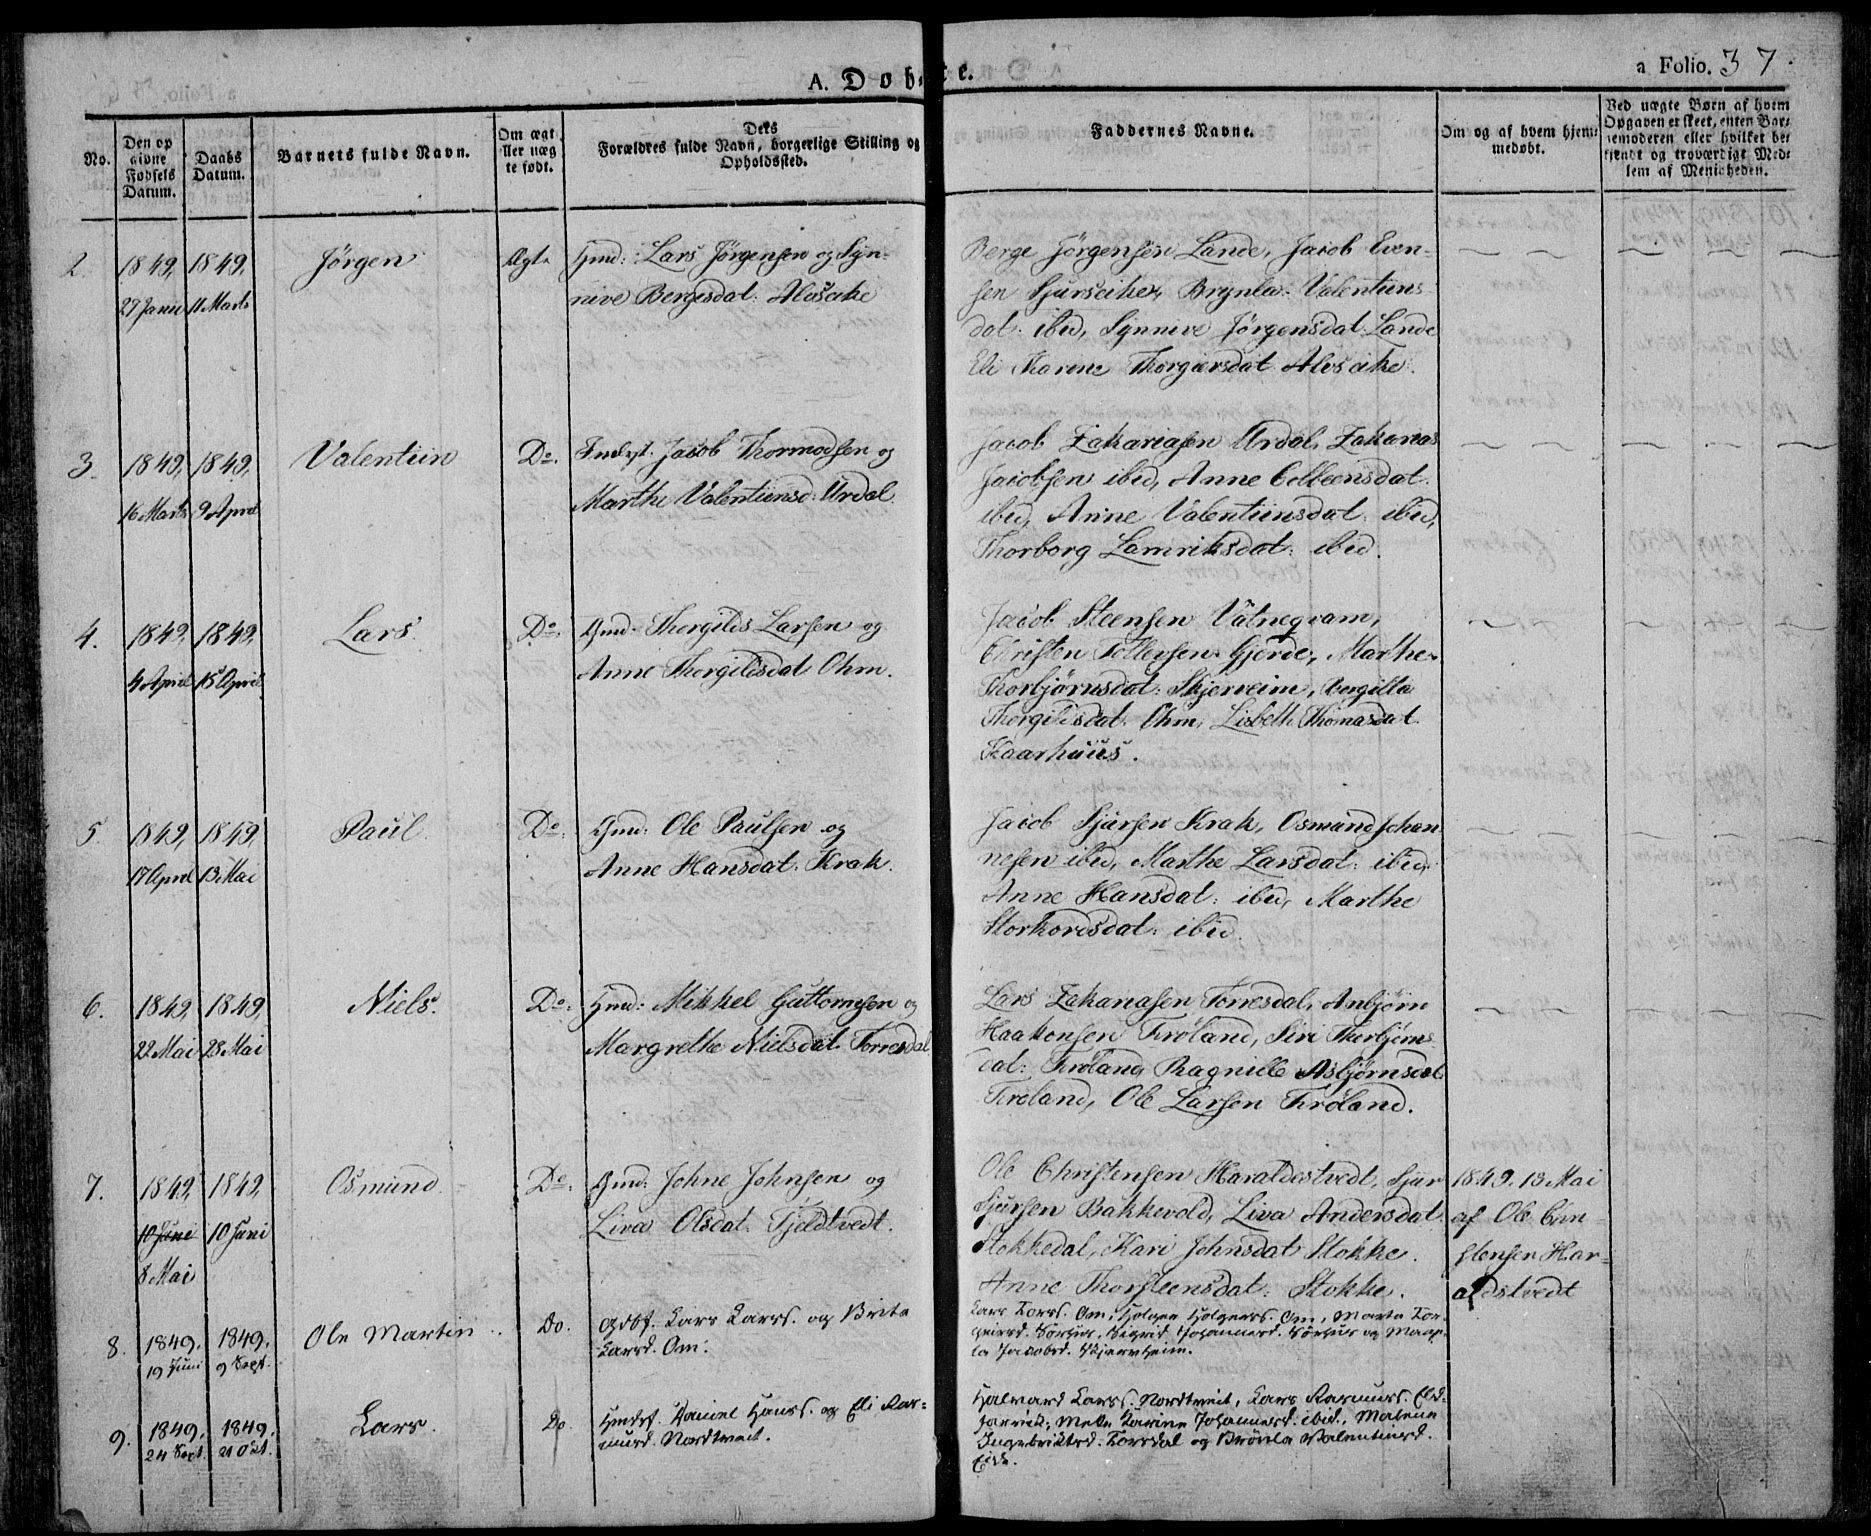 A. Døbte.
a Folio. 37.
No.
Den op
givne
Fødsels
Datum.
Daabs
Datum.
Barnets fulde Navn.
Om ægt
eller uæg
te født.
Dets
Forældres fulde Navn, borgerlige Stilling og
Opholdssted.
Faddernes Navne.
Om og af hvem hjem-
medøbt.
Ved uægte Børn af hvem
Opgaven er skeet, enten Bar-
nemoderen eller hvilket be-
kjendt og troværdigt Med-
lem af Menigheden.
2. 1849, 1849, Jörgen Ægte Gmd: Lars Jörgensen og Syn-
27 Janu 11 Marts nive Bergesdat: Alvseike
Berge Jörgensen Lande, Jacob Even-
sen Sjurseike, Brynla Valentiins-
dat: ibid, Synnive Jörgensdat Lande
Eli Karine Thorgiersdat Alvseike.
3. 1849, 1849, Valentiin Do. Inderst: Jacob Thormodsen og
16 Marts 9 April Marthe Valentiinsd: Urdal
Jacob Zakariasen Urdal, Zakarias
Jacobsen ibid, Anne Colbeensdat.
ibid, Anne Valentiinsdat: ibid,
Thorborg Lamriksdat: ibid.
4. 1849, 1849, Lars. Do. Gmd: Thorgils Larsen og
4 April 15 April Anne Thorgilsdat Ohm.
Jacob Steensen Vatnegram,
Christen Tollevsen Gjerde, Marthe
Thorbjörnsdat: Skjerveim, Bergitta
Thorgilsdat. Ohm, Lisbeth Thomasdat
Kaarhuus.
5. 1849, 1849, Paul Do. Gmd: Ole Paulsen og
17 April 13 Mai Anne Hansdat: Krak.
Jacob Sjursen Krak, Osmund Johan-
nesen ibid, Marthe Larsdat: ibid,
Anne Hansdat: ibid, Marthe
Storkorsdat: ibid.
6. 1849, 1849, Niels. Do. Gmd: Mikkel Guttormsen og
22 Mai 28 Mai Margrethe Nielsdat Torresdal
Lars Zakariasen Torresdal, Anbjörn
Haakonsen Fröland, Siri Thorbjörns-
dat: Fröland, Ragnille Asbjörnsdat
Fröland, Ole Larsen Fröland.
7. 1849, 1849, Osmund Do. Gmd: Johne Johnsen og
10 Juni 10 Juni Liva Olsdat: Fjeldtvedt.
8 Mai
Ole Christensen Haraldestvedt, Sjur
Sjursen Bakkevold, Liva Andersdat
Stokkedal, Kari Johnsdat Stokke.
Anne Thorsteensdat: Stokke.
1849, 13 Mai
af Ole Cri-
stensen Har-
aldstvedt
8. 1849. 1849. Ole Martin Do. Lars Larss. og Brita
19 Juni 9 Sept. Larsd. Om.
Lars Torss. Om, Holger Holgers. Om, Marta Tor-
geirsd. Sørhus, Sigrid Johannesd. Sørhus og Mag-
la Jacobsd. Skjerveim.
9. 1849. 1849. Lars. Do. Daniel Hanss. og Eli Ras-
24 Sept. 21 Okt. musd. Nordtveit.
Halvard Larss. Nordtveit, Lars Rasmuss.
Mette Karine Johannesd. ibid., Malene
Ingebriktsd. Torsdal og Brönla Valentinsd.
Eide.